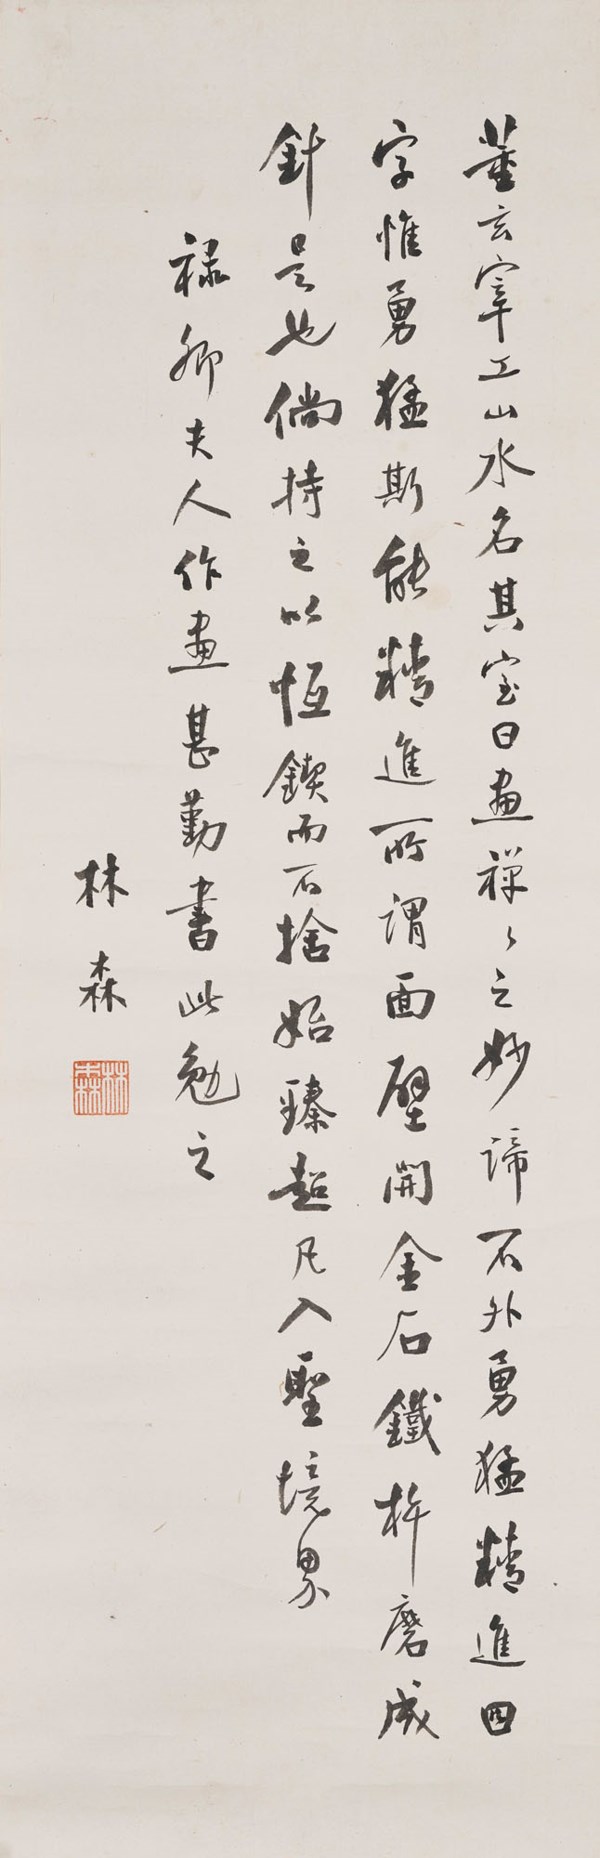 董玄宰工山水名其室曰畫禪〻之妙諦不外勇猛精進四
字惟勇猛斯能精進所謂面壁開金石鐵杵磨成
針是也倘持之以恆鍥而不捨始臻超凡入聖境界
祿卿夫人作畫甚勤書此勉之
林森
林森